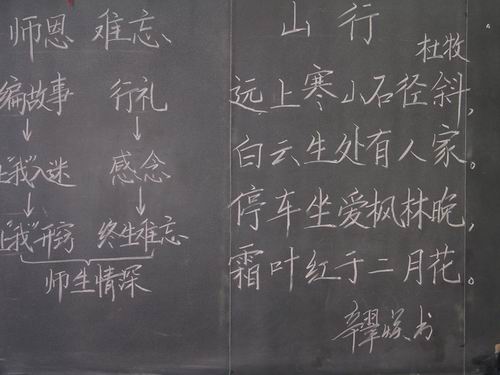 师恩 难忘
编故事 行礼
↓ ↓
让"我"入迷 感念
↓ ↓
让"我"开窍 终生难忘
师生情深
山 行
杜牧
远上寒山石径斜，
白云生处有人家。
停车坐爱枫林晚，
霜叶红于二月花。
书